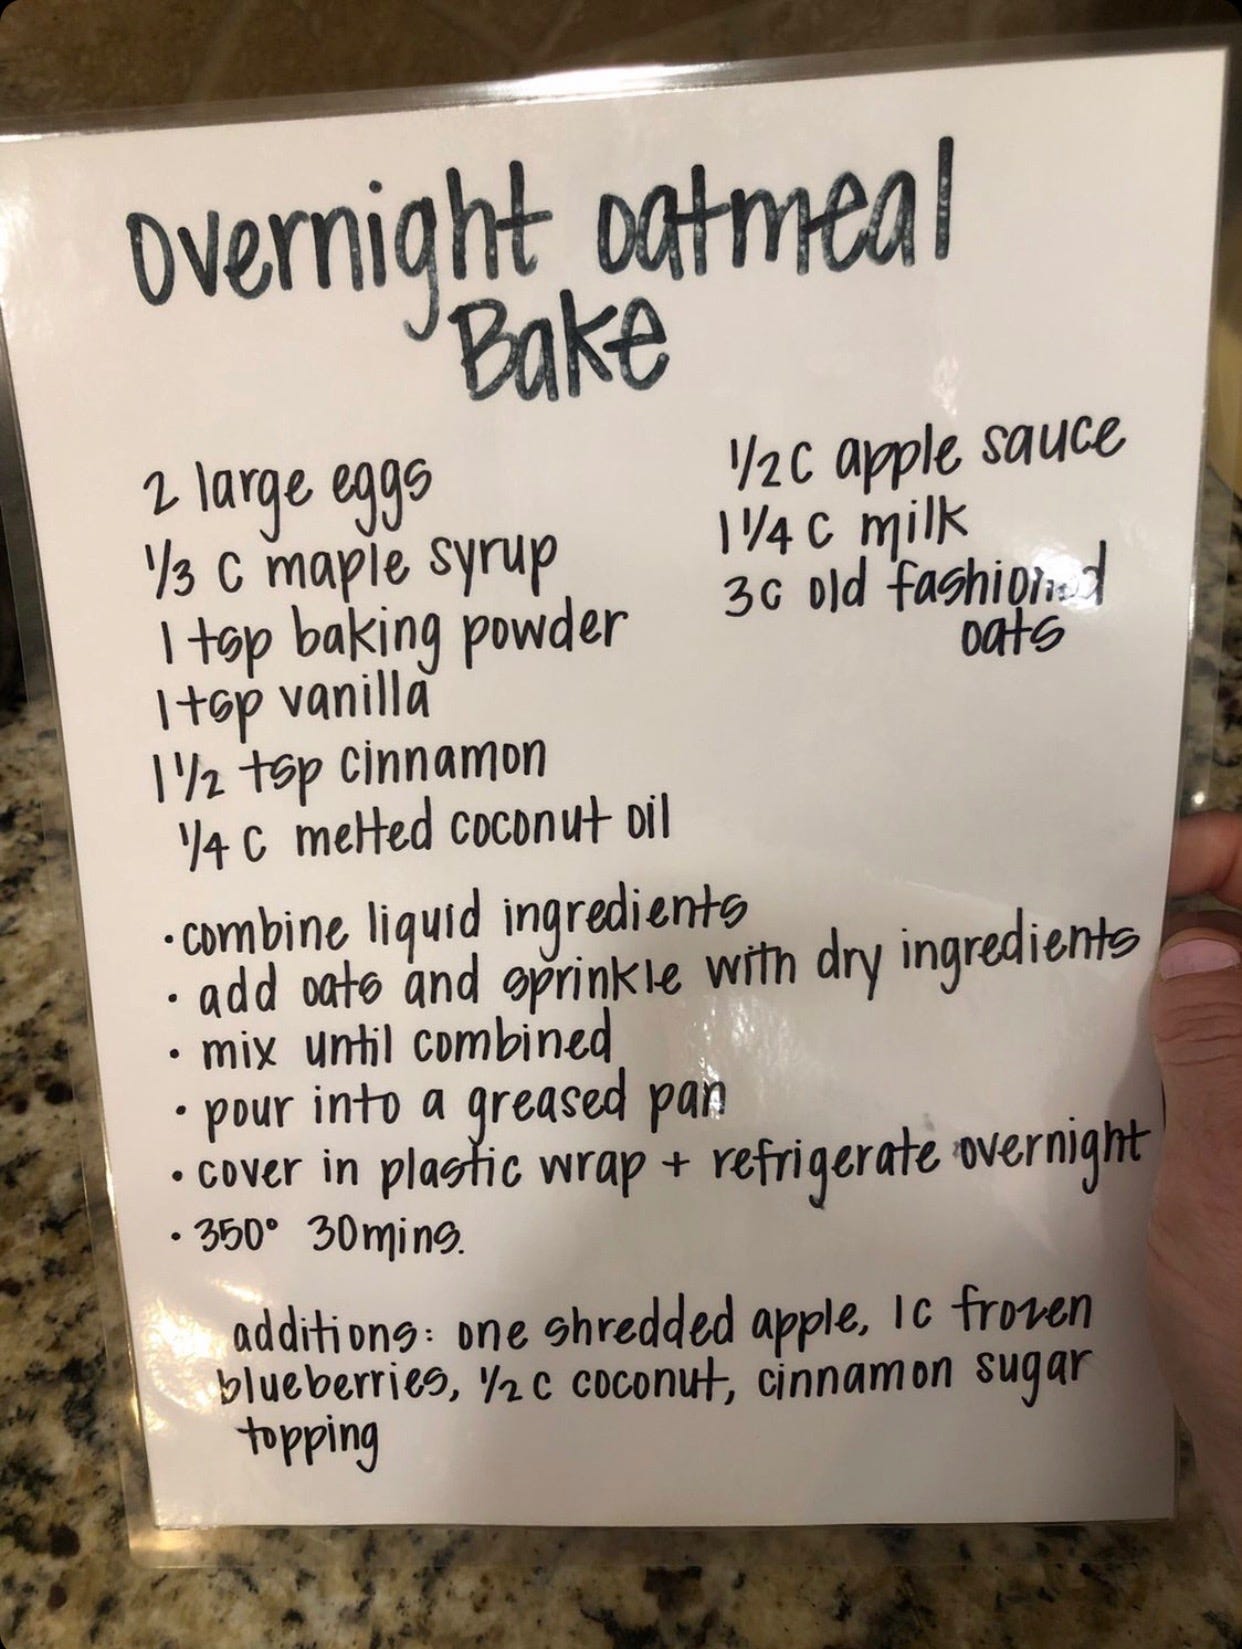 Overnight oatmeal
Bake
2 large eggs
1/3 C maple syrup
1 tsp baking powder
1 tsp vanilla
1 1/2 tsp cinnamon
1/4 C melted coconut oil
1/2 C apple sauce
1 1/4 C milk
3C old fashioned
oats
• combine liquid ingredients
• add oats and sprinkle with dry ingredients
• mix until combined
• pour into a greased pan
• cover in plastic wrap + refrigerate overnight
• 350° 30mins.
additions: one shredded apple, 1C frozen
blueberries, 1/2 C coconut, cinnamon sugar
topping